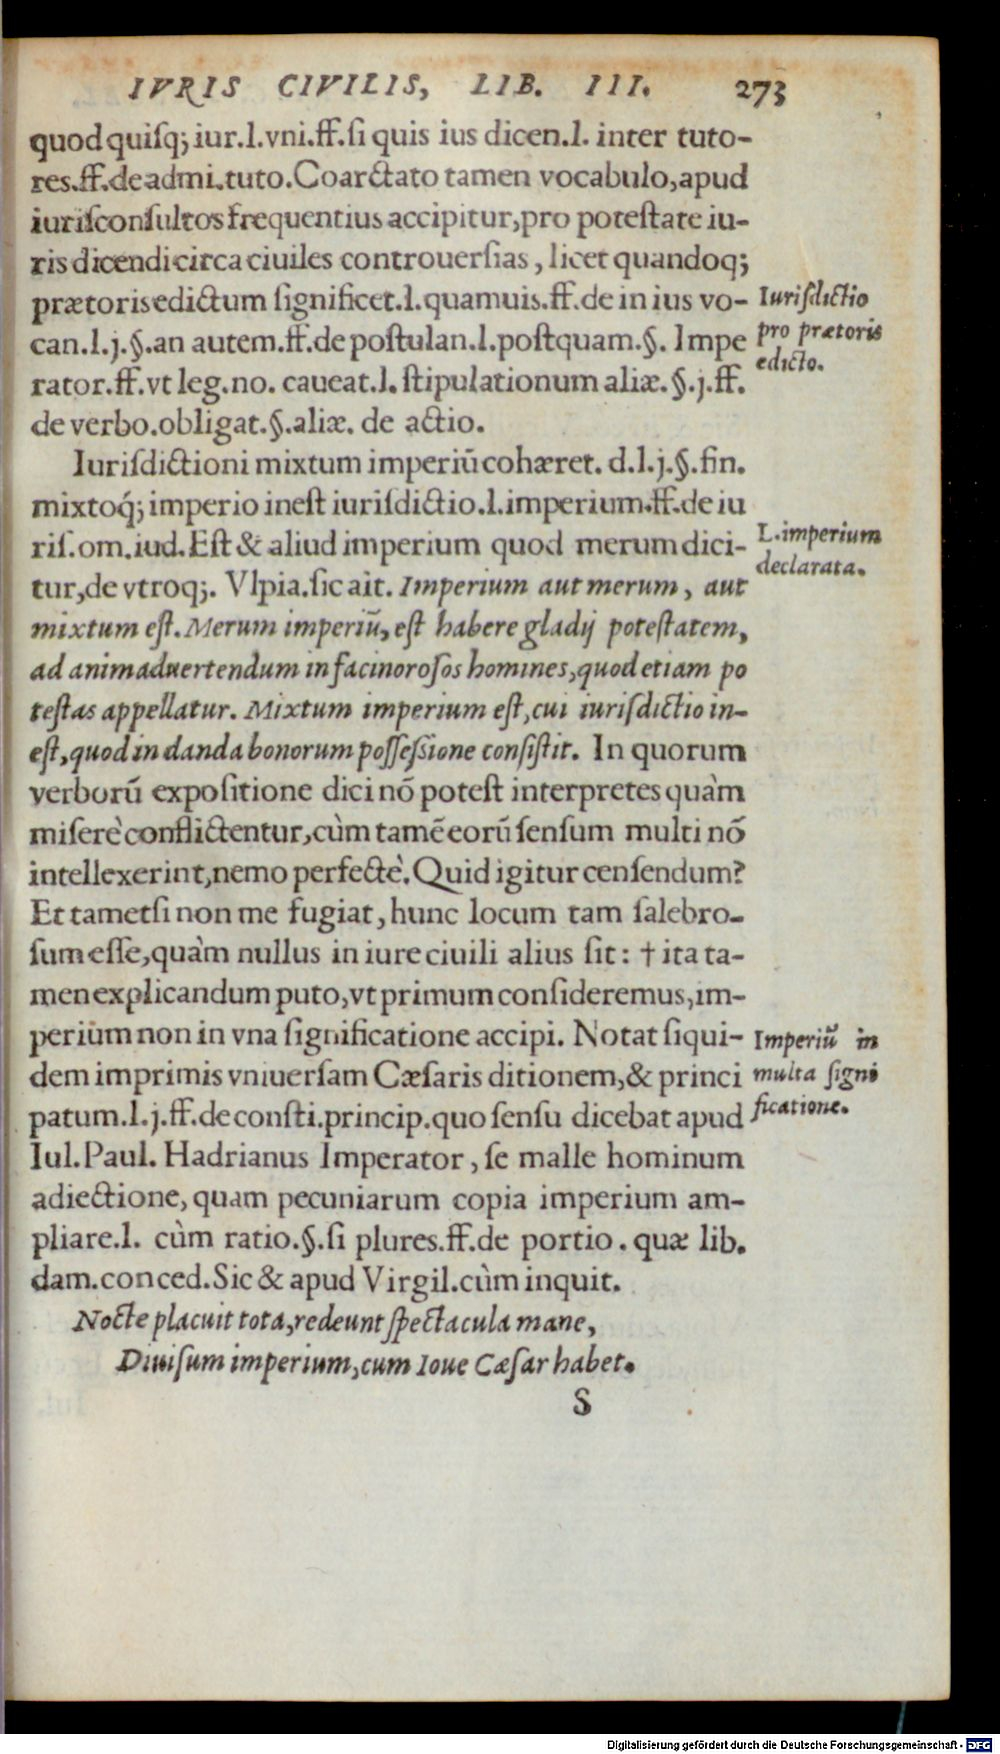 IVRIS CIVILIS, LIB. III. 273
quod quiſq; iur.l.vni.ff.ſi quis ius dicen.l. inter tuto-
res.ff.de admi.tuto.Coarctato tamen vocabulo,apud
iuriſconſultos frequentius accipitur,pro poteſtate iu-
ris dicendi circa ciuiles controuerſias, licet quandoq;
prætoris edictum ſignificet.l.quamuis.ff.de in ius vo-
can.l.j.§.an autem.ff.de poſtulan.l.poſtquam.§. Impe
rator.ff.vt leg.no. caueat.l.ſtipulationum aliæ.§.j.ff.
de verbo.obligat.§.aliæ. de actio.
Iuriſdictio
pro prætoris
edicto.
Iuriſdictioni mixtum imperiũ cohæret. d.l.j.§.fin.
mixtoq́; imperio ineſt iuriſdictio.l.imperium.ff.de iu
riſ.om.iud.Eſt & aliud imperium quod merum dici-
tur,de vtroq;. Vlpia.ſic ait. Imperium aut merum, aut
mixtum eſt.Merum imperiũ,eſt habere gladij poteſtatem,
ad animaduertendum in facinoroſos homines,quod etiam po
teſtas appellatur. Mixtum imperium eſt,cui iuriſdictio in-
eſt,quod in danda bonorum poſſeſsione conſiſtit. In quorum
verborũ expoſitione dici nõ poteſt interpretes quàm
miſerè conflictentur,cùm tamẽ eorũ ſenſum multi nõ
intellexerint,nemo perfectè. Quid igitur cenſendum?
Et tametſi non me fugiat, hunc locum tam ſalebro-
ſum eſſe,quàm nullus in iure ciuili alius ſit: † ita ta-
men explicandum puto,vt primum conſideremus,im-
perium non in vna ſignificatione accipi. Notat ſiqui-
dem imprimis vniuerſam Cæſaris ditionem,& princi
patum.l.j.ff.de conſti.princip.quo ſenſu dicebat apud
Iul.Paul. Hadrianus Imperator, ſe malle hominum
adiectione, quam pecuniarum copia imperium am-
pliare.l. cùm ratio.§.ſi plures.ff.de portio. quæ lib.
dam.conced.Sic & apud Virgil.cùm inquit.
L.imperium
declarata.
Imperiũ in
multa ſigni
ficatione.
Nocte placuit tota,redeunt ſpectacula mane,
Diuiſum imperium,cum Ioue Cæſar habet.
S
Digitalisierung gefördert durch die Deutsche Forschungsgemeinschaft - DFG